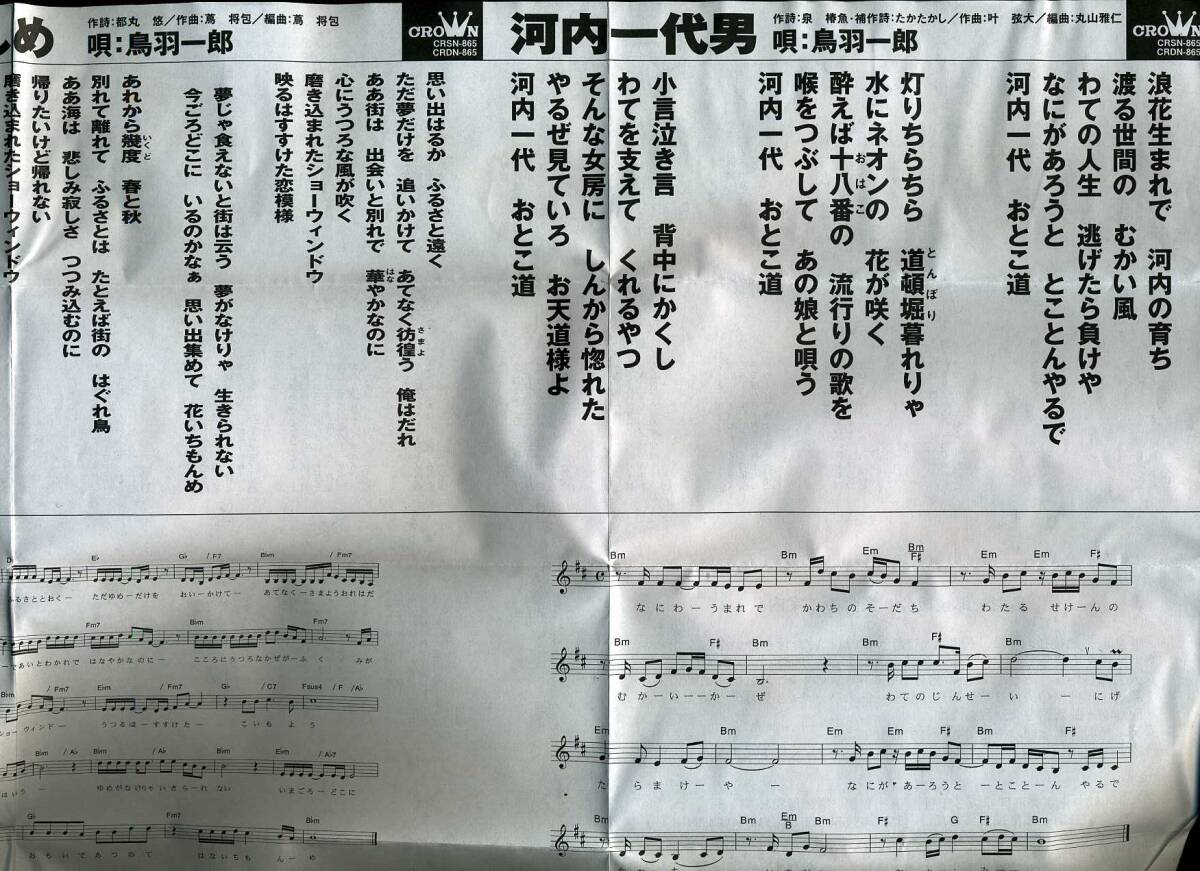 河内一代男
作詩:泉　椿魚・補作詩:たかたかし／作曲:叶　弦大／編曲:丸山雅仁
唄:鳥羽一郎
CROWN
CRSN-865
CRDN-865
浪花生まれで　河内の育ち
渡る世間の　むかい風
わての人生　逃げたら負けや
なにがあろうと　とことんやるで
河内一代　おとこ道
灯りちらちら　道頓堀暮れりゃ
とんぼり
水にネオンの　花が咲く
酔えば十八番の　流行りの歌を
おはこ
喉をつぶして　あの娘と唄う
河内一代　おとこ道
小言泣き言　背中にかくし
わてを支えて　くれるやつ
そんな女房に　しんから惚れた
やるぜ見ていろ　お天道様よ
河内一代　おとこ道
Bm Bm Em Bm F# Em Em F#
なにわーうまれで　かわちのそーだち　わたる　せけーんの
Bm F# Bm F# Bm
むかーいーーかーぜ　わてのじんせーい　ーにげ
Em Bm Em F# Bm F#
たらまけーや　ー　なにがあーろうと　ーとことーん　やるで
Bm Bm Em B Bm F# G F# Bm
め
作詩:都丸　悠／作曲:蔦　将包／編曲:蔦　将包
唄:鳥羽一郎
CROWN
CRSN-865
CRDN-865
思い出はるか　ふるさと遠く
ただ夢だけを　追いかけて　あてなく彷徨う　俺はだれ
さまよ
ああ街は　出会いと別れで　華やかなのに
はな
心にうつろな風が吹く
磨き込まれたショーウィンドウ
映るはすすけた恋模様
夢じゃ食えないと街は云う　夢がなけりゃ　生きられない
今ごろどこに　いるのかなぁ　思い出集めて　花いちもんめ
あれから幾度　春と秋
いくど
別れて離れて　ふるさとは　たとえば街の　はぐれ鳥
ああ海は　悲しみ寂しさ　つつみ込むのに
帰りたいけど帰れない
磨き込まれたショーウィンドウ
E♭ G♭ /F7 B♭m /Fm7
ふるさととおくー　ただゆめーだけを　おいーかけてー　あてなくーさまようおれはだ
Fm7 B♭m Fm7
ーであいとわかれで　はなやかなのにー　こころにうつろなかぜがーふく　みが
/Fm7 E♭m /Fm7 G♭ /C7 Fsus4 /F /A♭
ショーウィンドー　うつるはーすすけたー　こいもよう
B♭m /A♭ B♭m /A♭ B♭m E♭m /A♭7
はいう　ー　ゆめがなけりゃいきらーれ　ない　いまごろーどこに
G♭ Fm7 B♭m
おもいであつめて　はないちも　んーめ